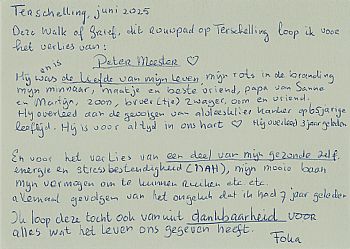 Terschelling, juni 2025
Deze Walk of Grief, dit rouwpad op Terschelling loop ik voor
het verlies van:
Peter Meester ♡
en is
Hij was de liefde van mijn leven, mijn rots in de branding
mijn minnaar, maatje en beste vriend, papa van Sanne
en Martijn, zoon, broer(tje) zwager, oom en vriend.
Hij overleed aan de gevolgen van alvleesklier kanker op 65 jarige
leeftijd. Hij is voor altijd in ons hart ♡ Hij overleed 3 jaar geleden.
En voor het verlies van een deel van mijn gezonde zelf,
energie en stressbestendigheid (NAH), mijn mooie baan
mijn vermogen om te kunnen ruiken etc. etc.
allemaal gevolgen van het ongeluk dat ik had 7 jaar geleden
Ik loop deze tocht ook vanuit dankbaarheid voor
alles wat het leven ons gegeven heeft.
Foka